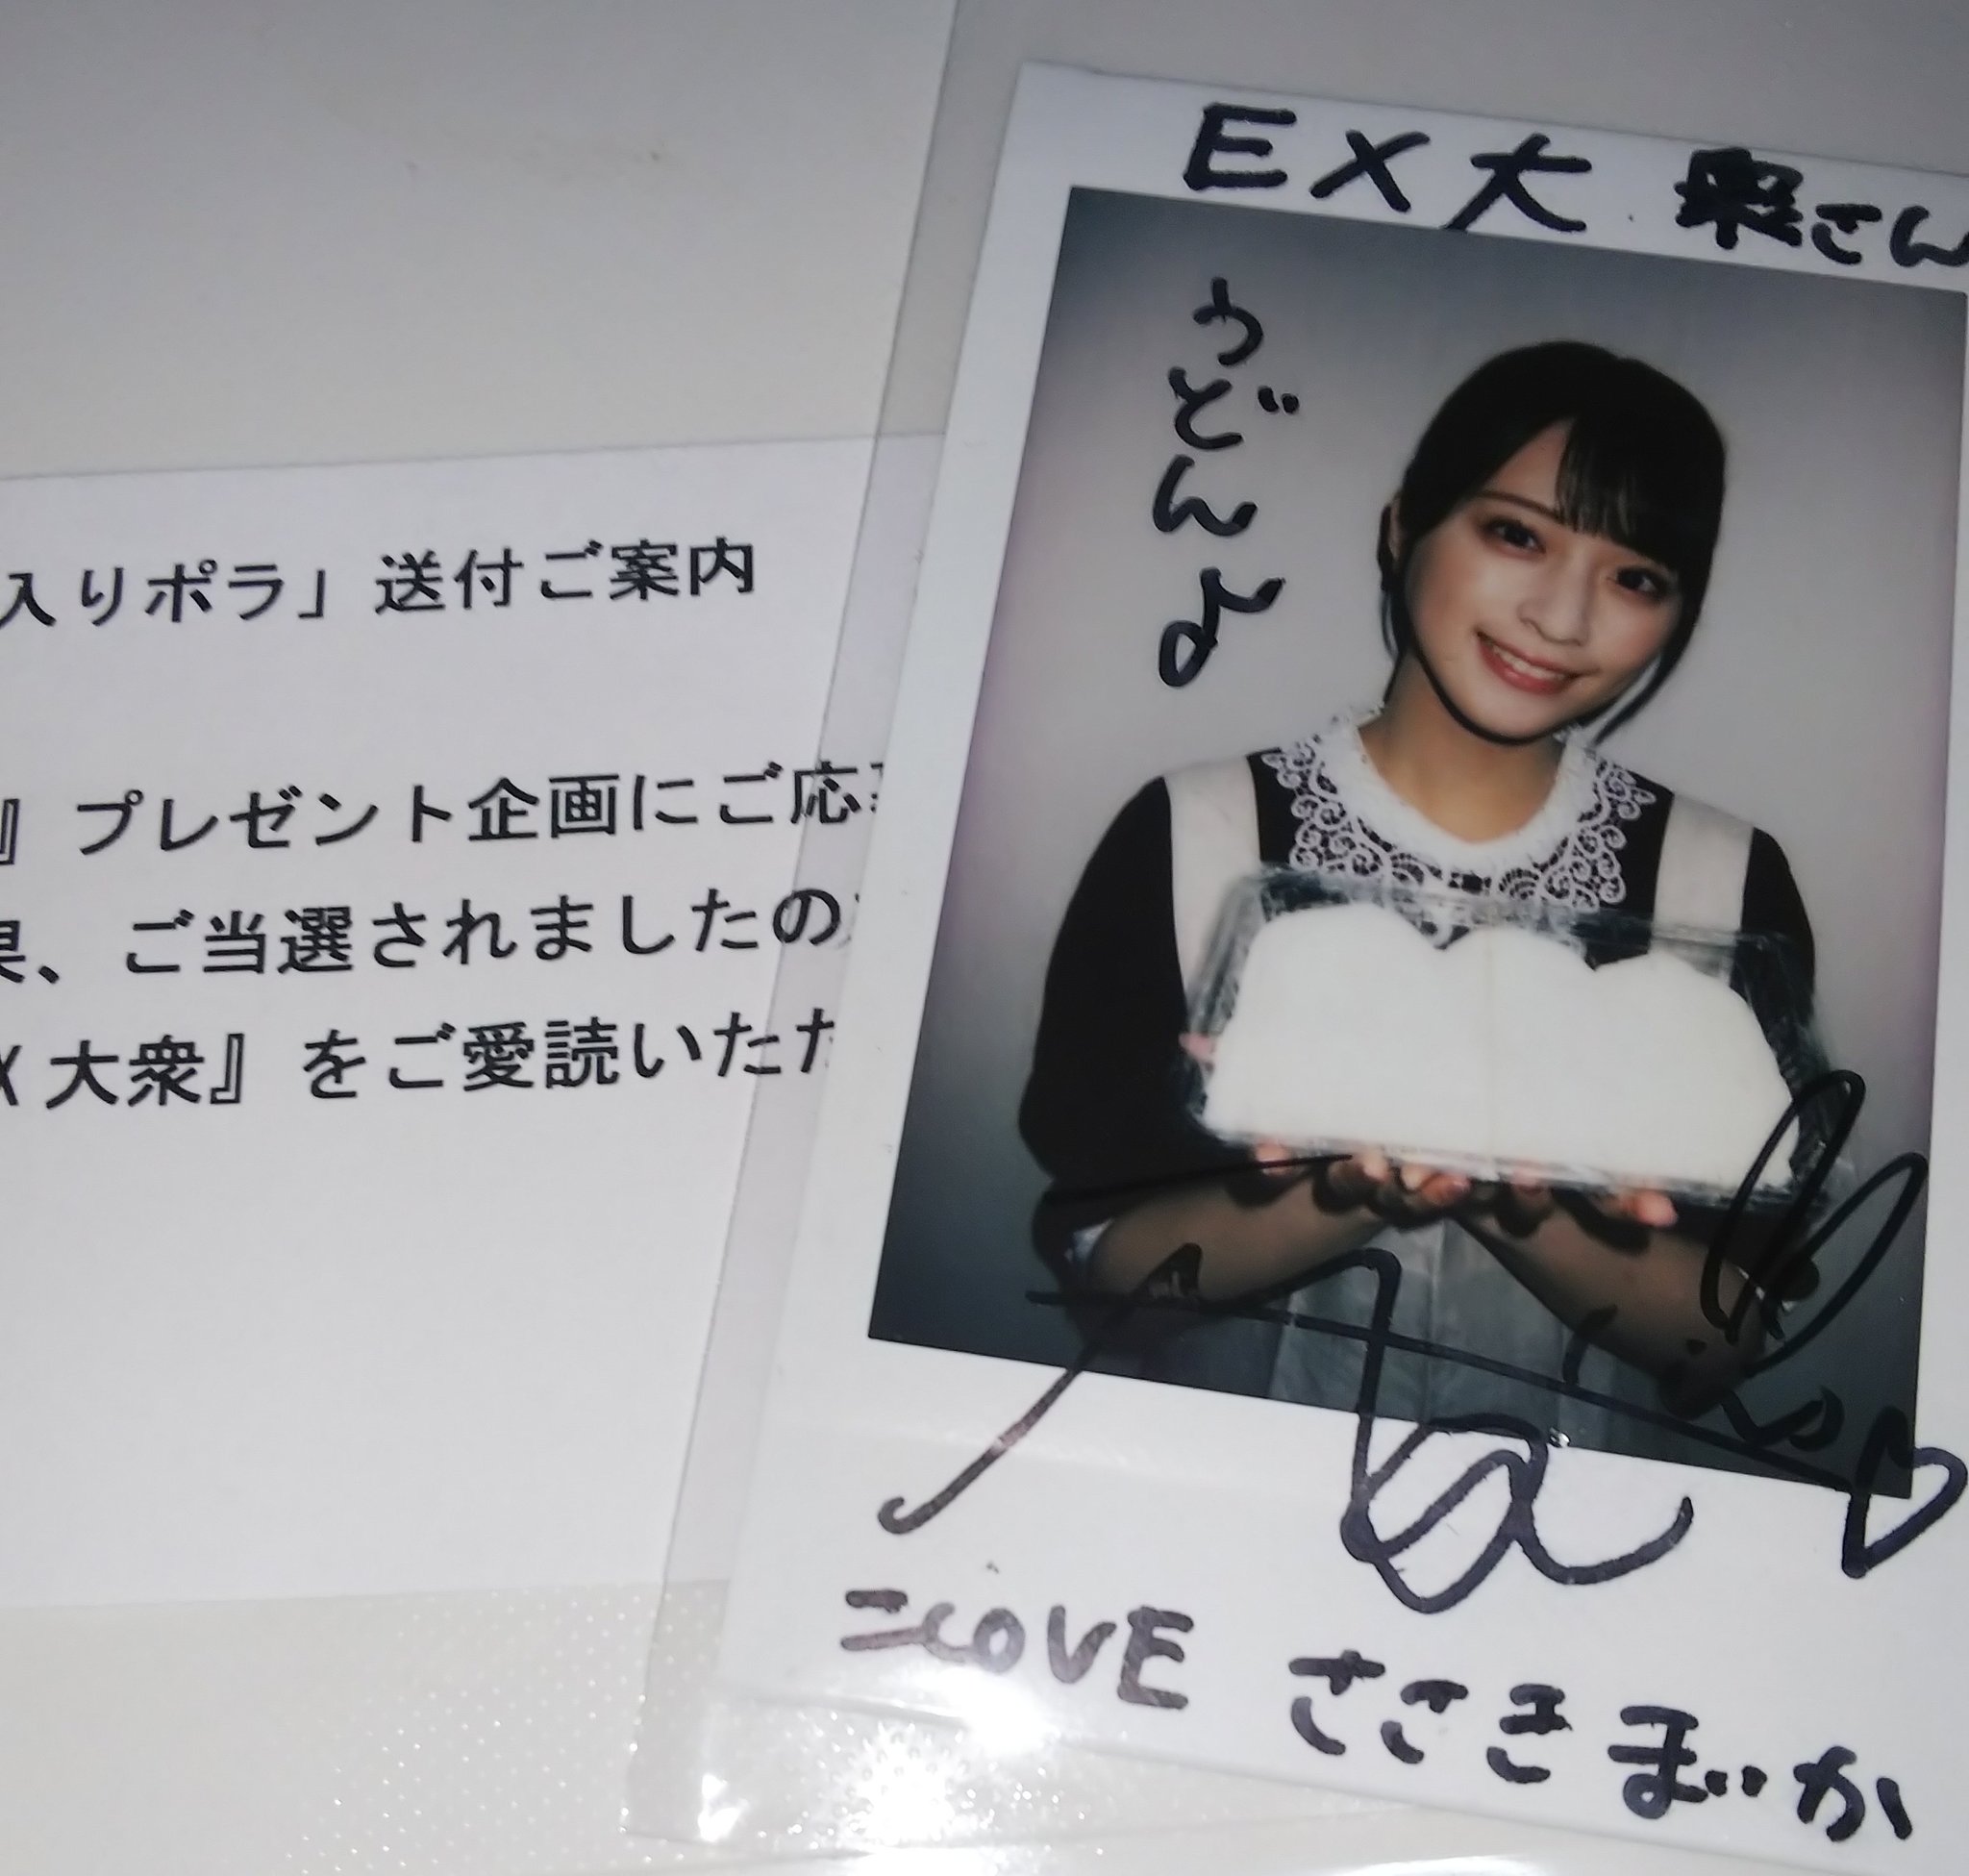 入りポラ」送付ご案内
』プレゼント企画にご応
果、ご当選されましたの
X大衆』をご愛読いただ
EX大衆さん
うどん♪
=LOVE ささきまいか